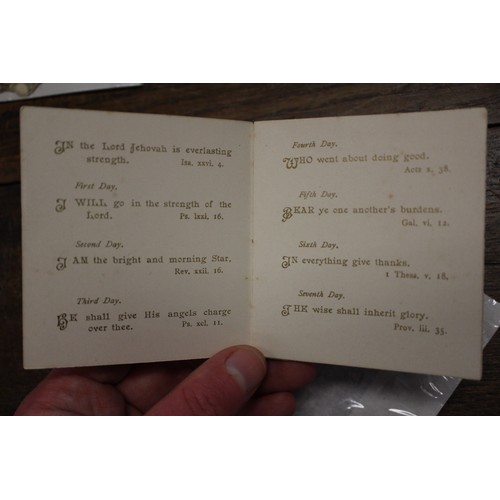 IN the Lord Jehovah is everlasting
strength. Isa. xxvi. 4.
First Day.
I WILL go in the strength of the
Lord. Ps. lxxi. 16.
Second Day.
I AM the bright and morning Star.
Rev. xxii. 16.
Third Day.
HE shall give His angels charge
over thee. Ps. xci. 11.
Fourth Day.
WHO went about doing good.
Acts x. 38.
Fifth Day.
BEAR ye one another's burdens.
Gal. vi. 12.
Sixth Day.
IN everything give thanks.
1 Thess. v. 18.
Seventh Day.
THE wise shall inherit glory.
Prov. iii. 35.